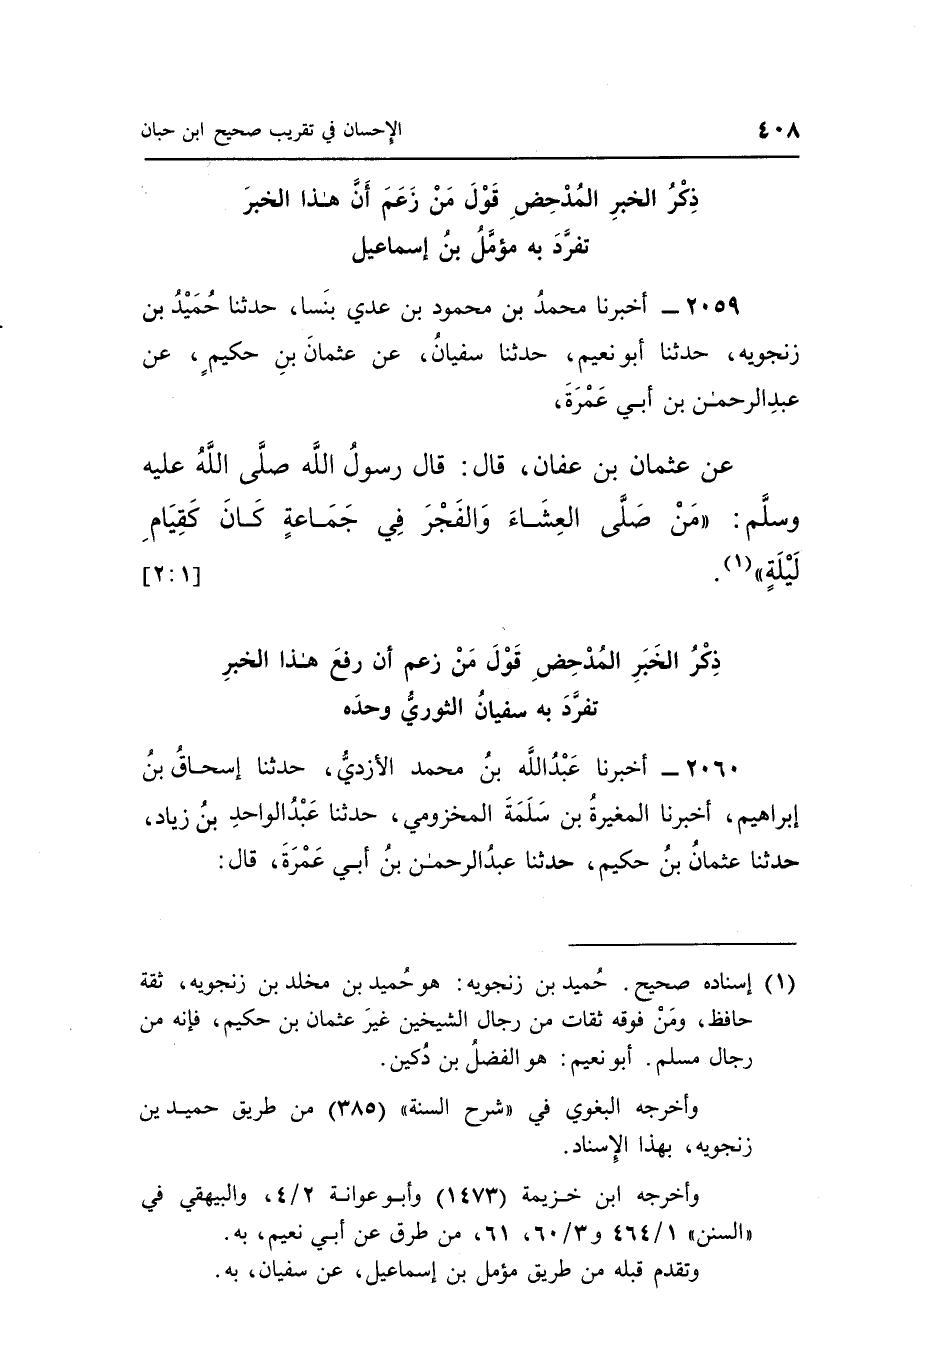 ٤٠٨ الإحسان في تقريب صحيح ابن حبان
ذِكْرُ الخبرِ المُدْحِضِ قَوْلَ مَنْ زَعَمَ أَنَّ هـٰذا الخبرَ
تفرَّدَ به مؤمَّلُ بنُ إسماعيل
٢٠٥٩ ـ أخبرنا محمدُ بن محمود بن عدي بنَسا، حدثنا حُمَيْدُ بن
زنجويه، حدثنا أبو نعيم، حدثنا سفيانُ، عن عثمانَ بنِ حكيمٍ، عن
عبدِالرحمـٰن بن أبـي عَمْرَةَ،
عن عثمان بن عفان، قال: قال رسولُ اللَّه صلَّى اللَّهُ عليه
وسلَّم: «مَنْ صَلَّى العِشَـاءَ وَالفَجْرَ فِي جَمَـاعةٍ كَـانَ كَقِيَامِ
لَيْلَةٍ»(١). [٢:١]
ذِكْرُ الخَبَرِ المُدْحِضِ قَوْلَ مَنْ زعم أن رفعَ هـٰذا الخبرِ
تفرَّدَ به سفيانُ الثوريُّ وحدَه
٢٠٦٠ ـ أخبرنا عَبْدُاللَّه بنُ محمد الأزديُّ، حدثنا إسحـاقُ بنُ
إبراهيم، أخبرنا المغيرةُ بن سَلَمَةَ المخزومي، حدثنا عَبْدُالواحدِ بنُ زياد،
حدثنا عثمانُ بنُ حكيم، حدثنا عبدُالرحمـٰن بنُ أبـي عَمْرَةَ، قال:
(١) إسناده صحيح. حُميد بن زنجويه: هو حُميد بن مخلد بن زنجويه، ثقة
حافظ، ومَنْ فوقه ثقات من رجال الشيخين غيرَ عثمان بن حكيم، فإنه من
رجال مسلم. أبو نعيم: هو الفضلُ بن دُكين.
وأخرجه البغوي في «شرح السنة» (٣٨٥) من طريق حميـد ين
زنجويه، بهذا الإِسناد.
وأخرجه ابن خـزيمة (١٤٧٣) وأبـو عوانـة ٤/٢، والبيهقي في
«السنن» ٤٦٤/١ و٦٠/٣، ٦١، من طرق عن أبـي نعيم، به.
وتقدم قبله من طريق مؤمل بن إسماعيل، عن سفيان، به.